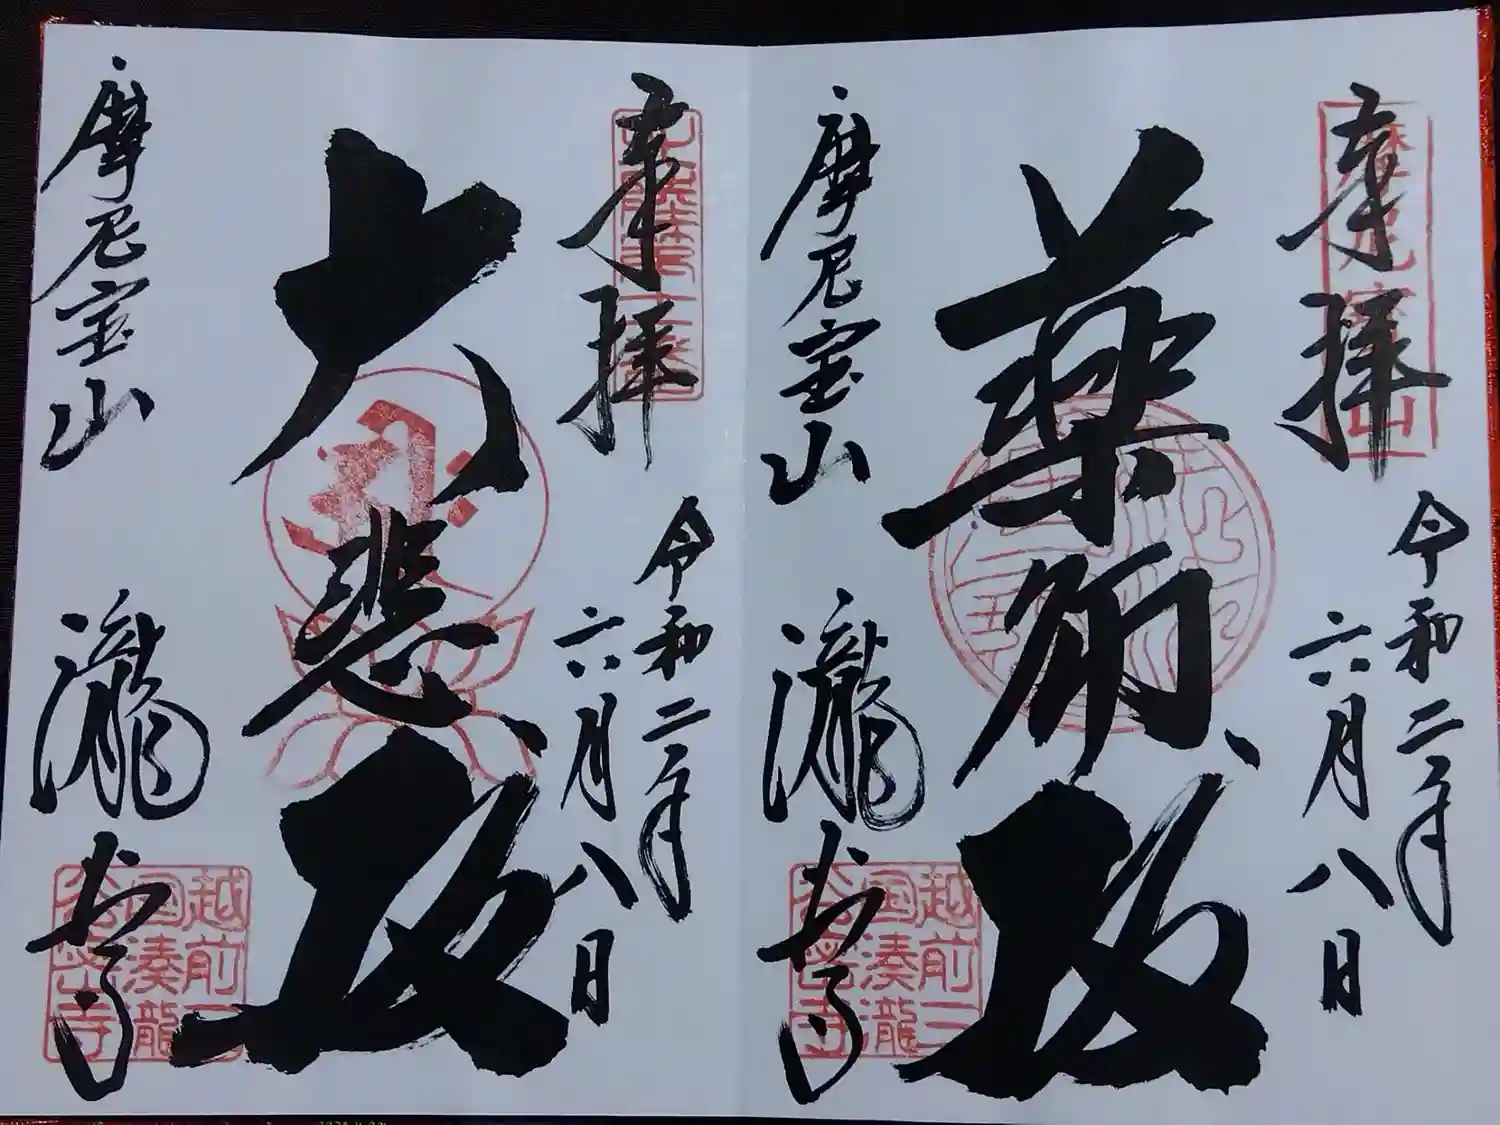 奉拝
令和二年
六月八日
薬師殿
摩尼宝山
瀧谷寺
越前
国湊瀧
寺
奉拝
令和二年
六月八日
大悲殿
摩尼宝山
瀧谷寺
越前
国湊瀧
寺